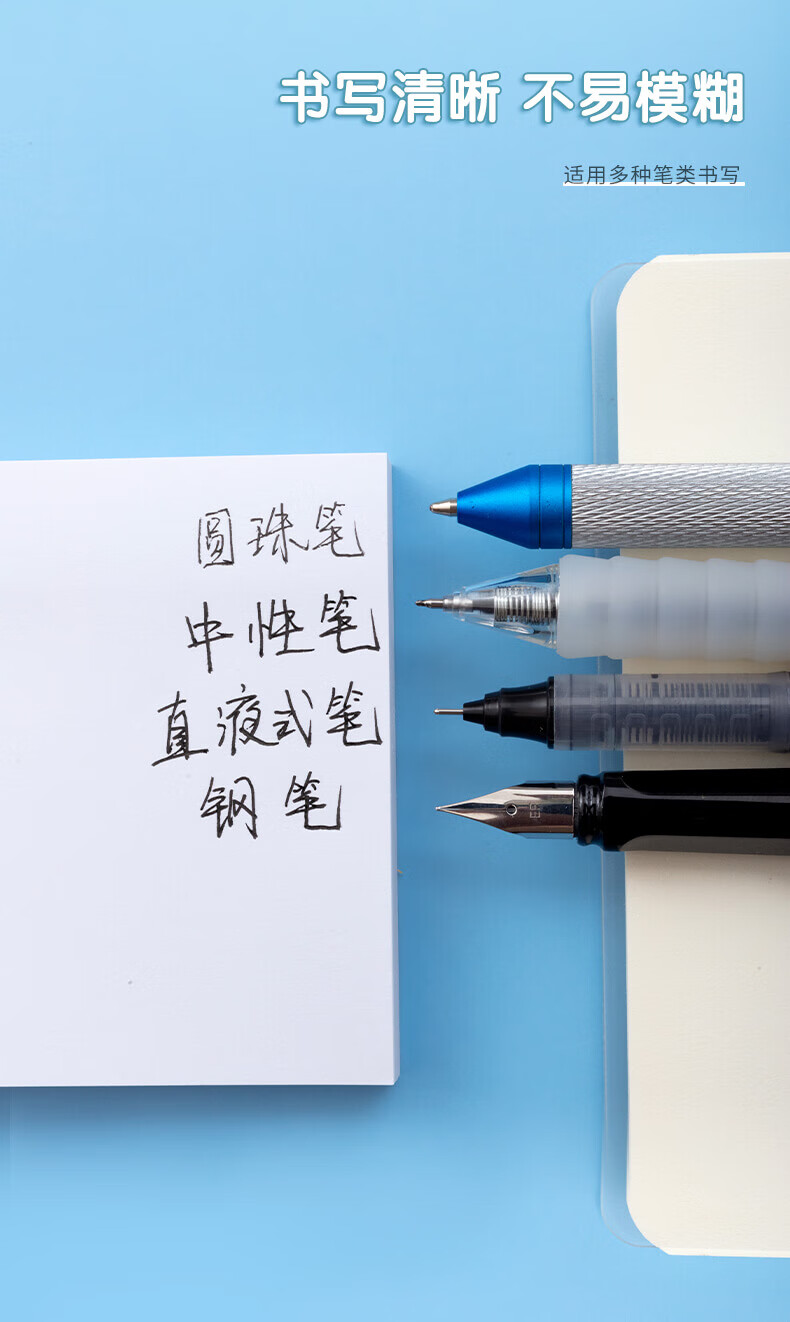 书写清晰 不易模糊
适用多种笔类书写
圆珠笔
中性笔
直液式笔
钢笔
EF